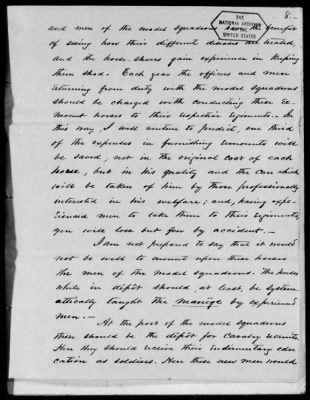 8.-
THE
NATIONAL ARCHIVES
OF THE
UNITED STATES
and men of the model squadrons have the benefit
of seeing how their different diseases are treated,
and the horse-shoers gain experience in keeping
them shod. Each year the officers and men
returning from duty with the model squadrons
should be charged with conducting these re-
mount horses to their respective regiments. In
this way, I will venture to predict, one third
of the expenses in furnishing remounts will
be saved, not in the original cost of each
horse, but in his quality and the care which
will be taken of him by those professionally
interested in his welfare; and, having expe-
rienced men to take them to their regiments,
you will lose but few by accident.-
I am not prepared to say that it would
not be well to mount upon these horses
the men of the model squadrons. The horses
while in depot should, at least, be system-
atically taught the manège by experienced
men.-
At the post of the model squadrons
there should be the depôt for Cavalry recruits
Here they should receive their rudimentary edu-
cation as soldiers. Here these new men would